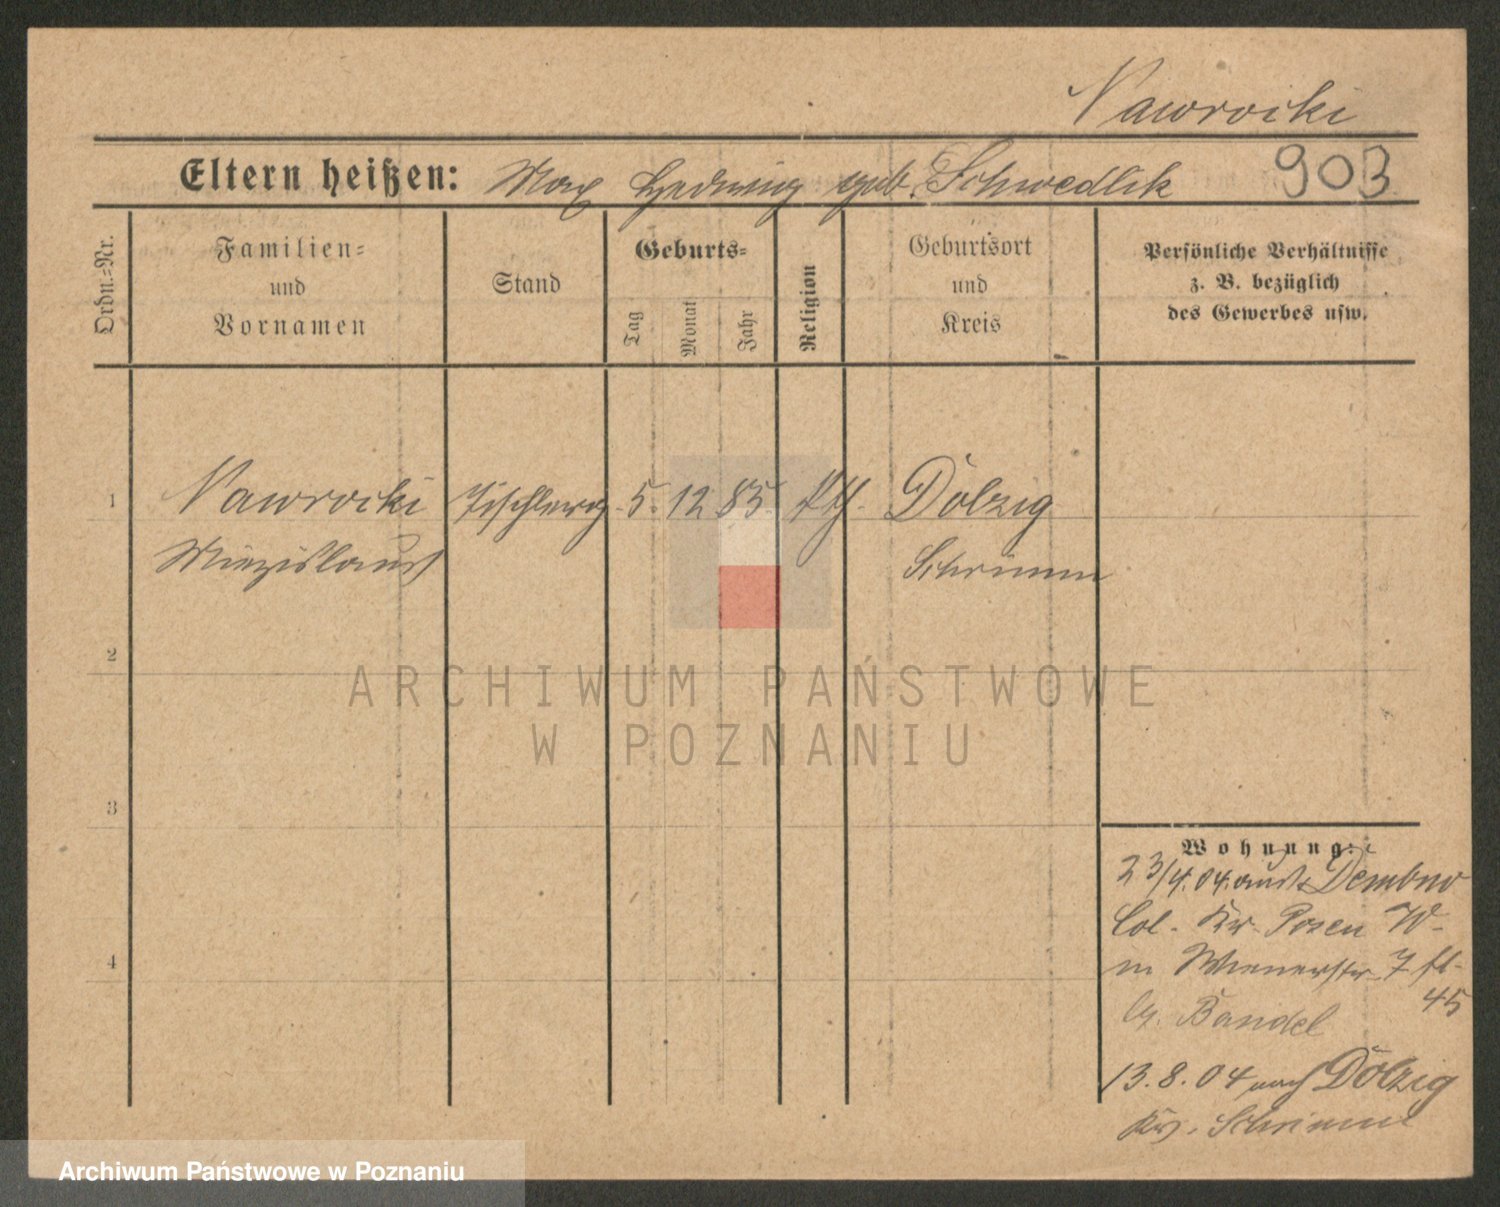 Nawrocki
Eltern heißen: Max Hedwig geb. Schwedlik 903
Ordn.=Nr.
Familien=
und
Vornamen
Stand
Geburts=
Tag
Monat
Jahr
Religion
Geburtsort
und
Kreis
Persönliche Verhältnisse
z. B. bezüglich
des Gewerbes usw.
1 Nawrocki Tischlerg. 5. 12 85. kth. Dolzig
Miezislaus Schrimm
2
ARCHIWUM PAŃSTWOWE
W POZNANIU
3
4
Wohnung:
23/4. 04. aus Dembno
Col. Kr. Posen W.
Wienerstr. 7
45
b/. Bandel
13. 8. 04 nach Dolzig
Kr. Schrimm
Archiwum Państwowe w Poznaniu